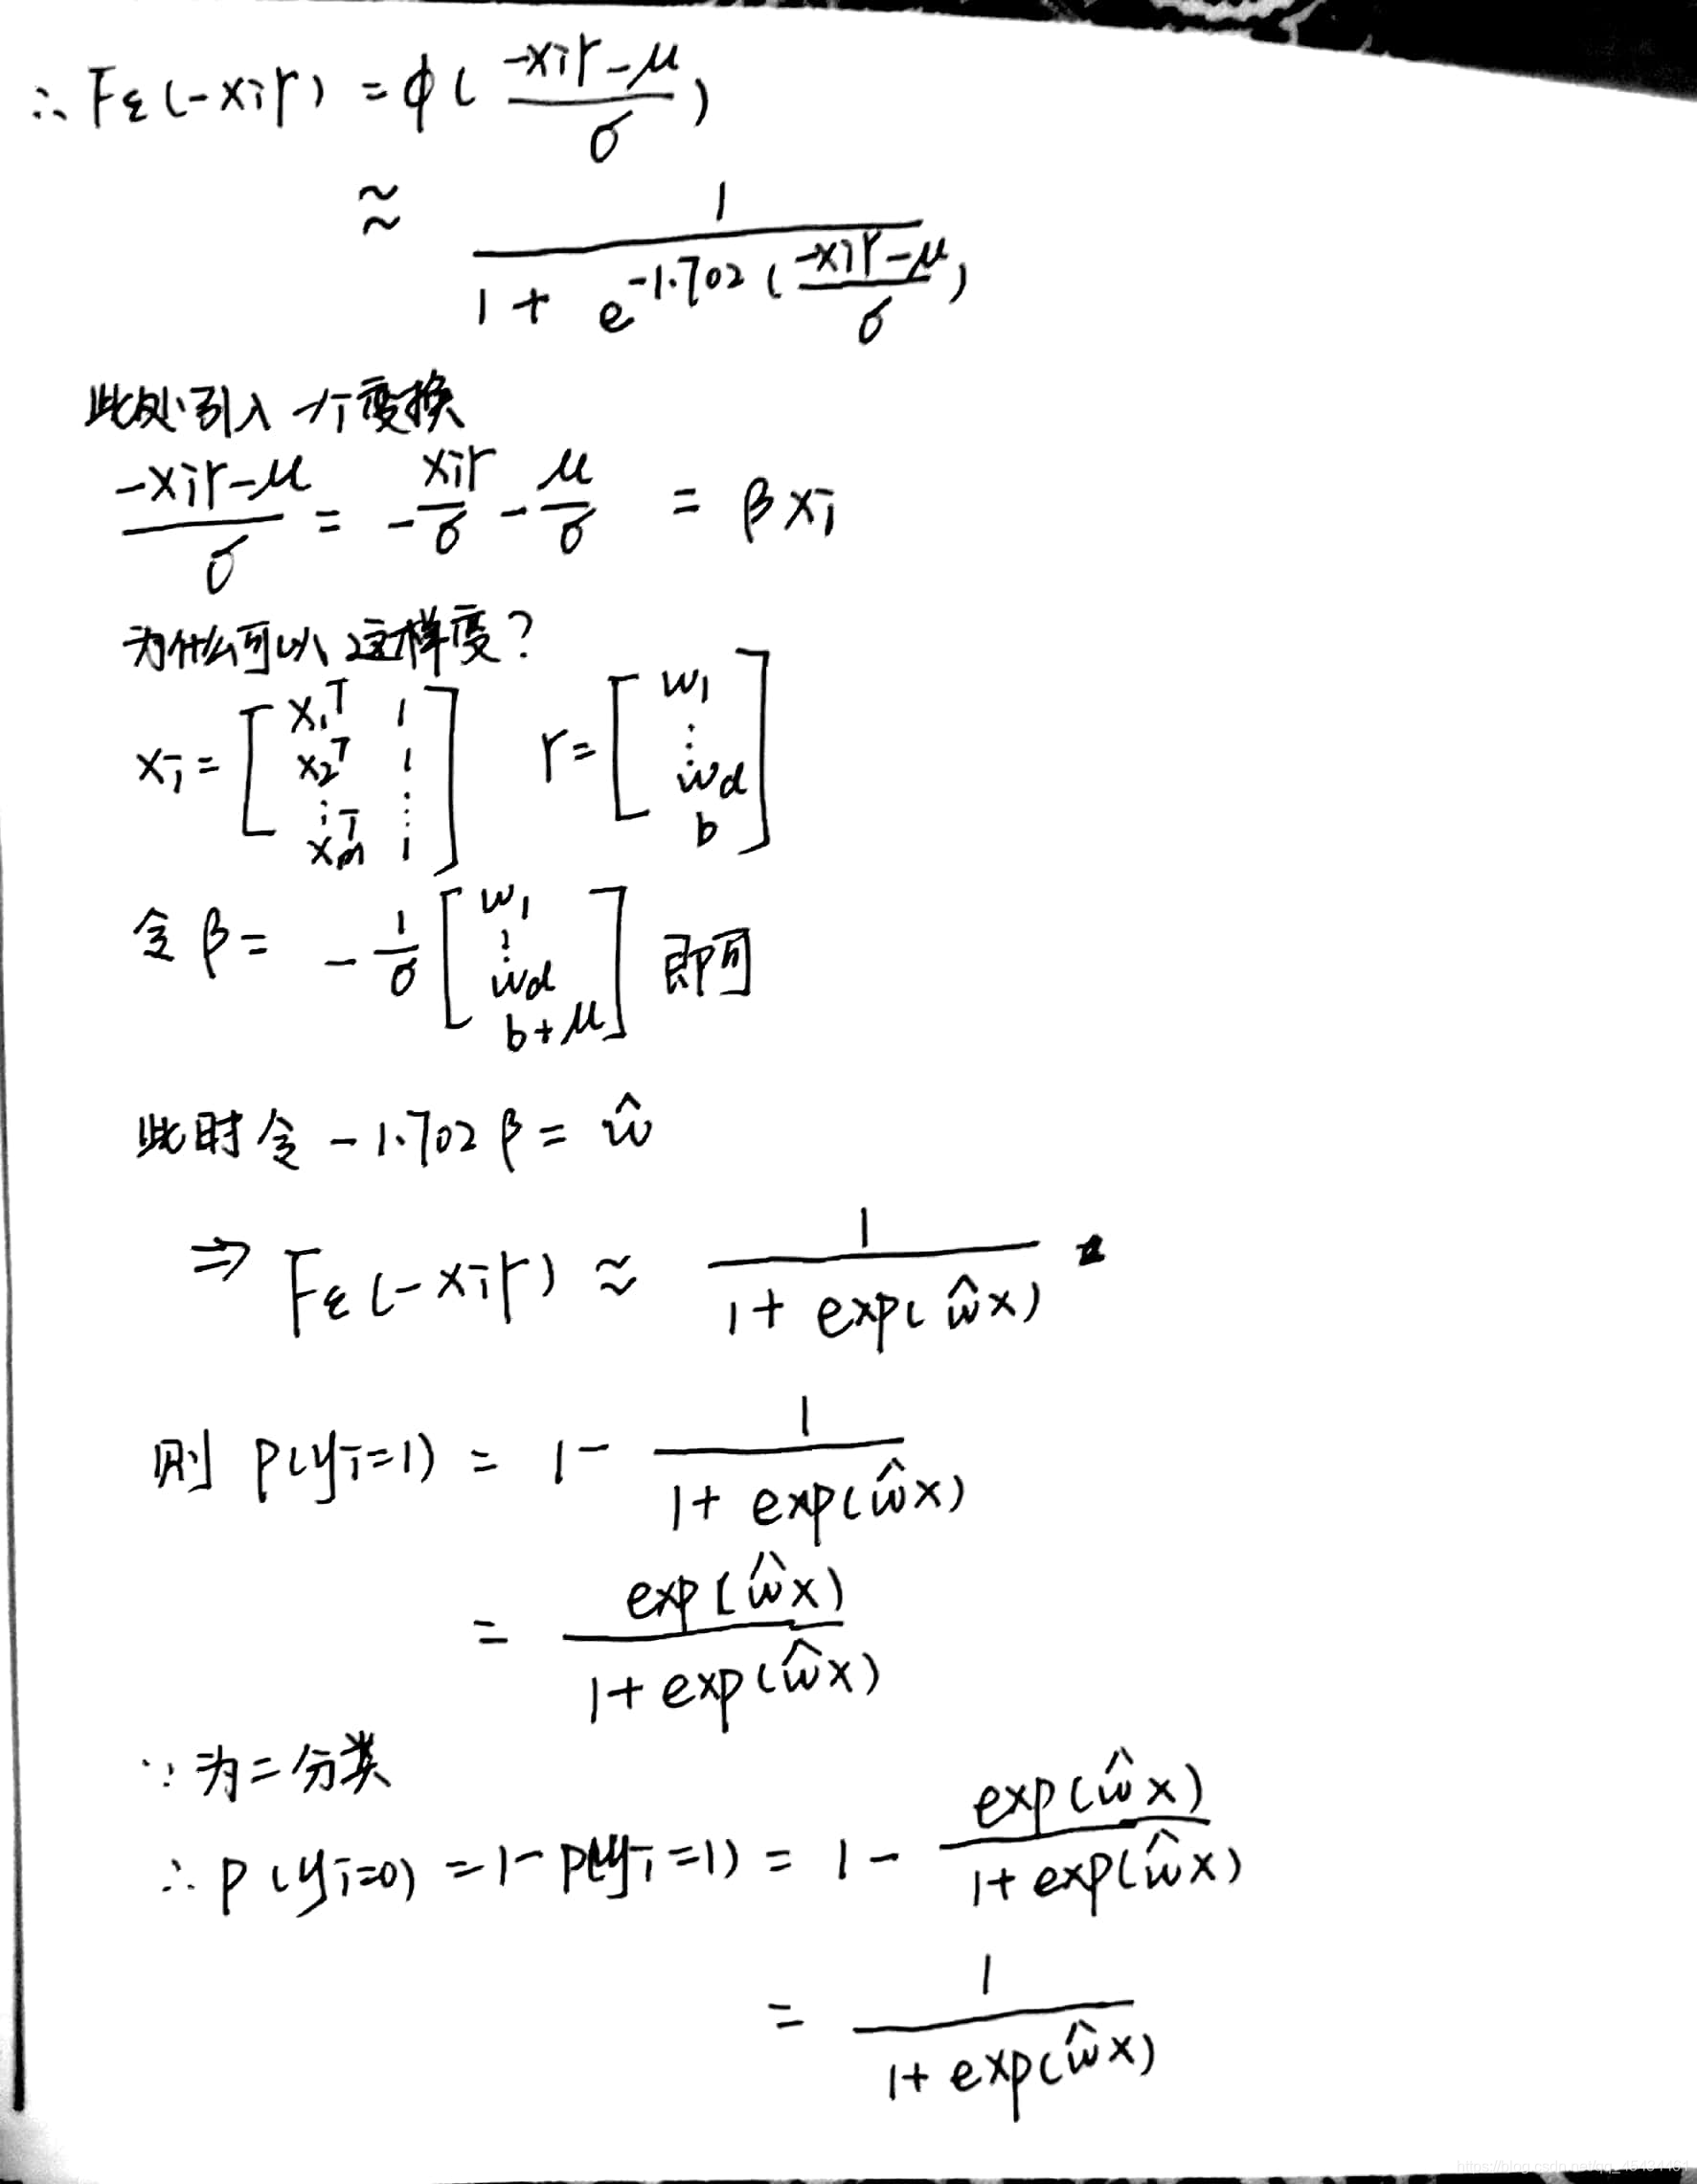 ∴ Fε(-xir) = ϕ((-xir-μ)/σ)
≈ 1/(1+e^{-1.702((-xir-μ)/σ)})
此处引入一个变换
(-xir-μ)/σ = -xir/σ - μ/σ = βxi
为什么可以这样变?
xi = [x₁ᵀ 1; x₂ᵀ 1; ⋮ ⋮; xₘᵀ 1] r = [w₁; ⋮; wd; b]
令 β = -1/σ [w₁; ⋮; wd; b+μ] 即可
此时令 -1.702β = ŵ
⇒ Fε(-xir) ≈ 1/(1+exp(ŵx))
则 p(yi=1) = 1 - 1/(1+exp(ŵx))
= exp(ŵx)/(1+exp(ŵx))
∵ 为二分类
∴ p(yi=0) = 1-p(yi=1) = 1 - exp(ŵx)/(1+exp(ŵx))
= 1/(1+exp(ŵx))